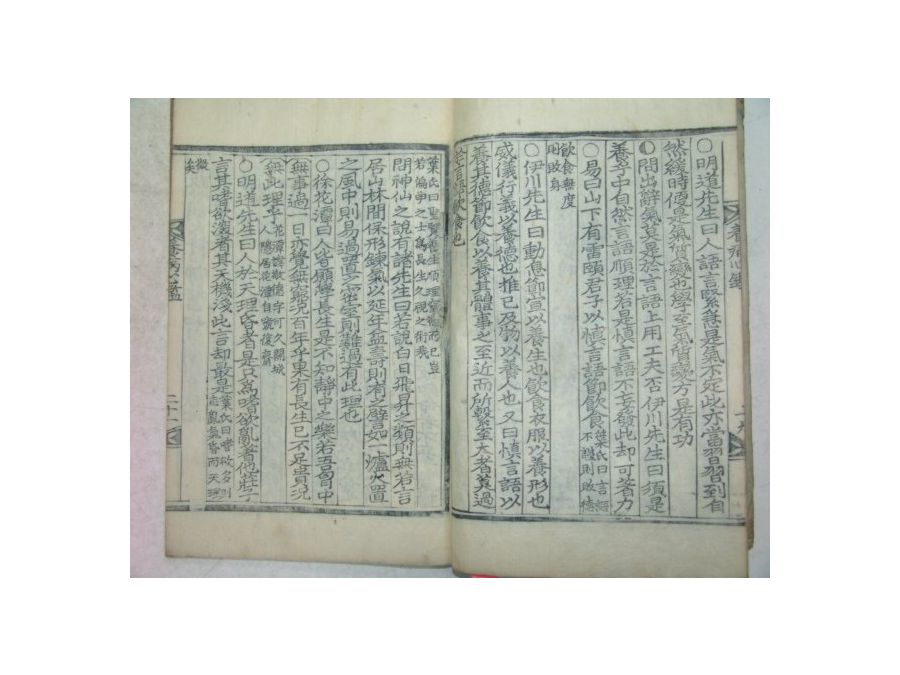 ○明道先生曰人語言緊急是氣不定此亦當習習到自
然緩時便是氣質變也學至氣質變方是有功
○問出辭氣莫是於言語上用工夫否伊川先生曰須是
養乎中自然言語順理若是愼言語不妄發此却可著力
○易曰山下有雷頤君子以愼言語節飮食
葉氏曰言語
不謹則敗德
飮食無度
則敗身
○伊川先生曰動息節宣以養生也飮食衣服以養形也
威儀行義以養德也推己及物以養人也又曰愼言語以
養其德節飮食以養其體事之至近而所繫至大者莫過
於言語飮食也
葉氏曰聖賢養生順理
而已豈
若偏曲之士爲長生久視之術哉
問神仙之說有諸先生曰若說白日飛昇之類則無若言
居山林間保形鍊氣以延年益壽則有之譬如一爐火置
之風中則易過置之密室則難過有此理也
○徐花潭曰人皆願學長生是不知靜中之樂若吾胷中
無事過一日亦覺無窮況百年乎果有長生已不足貴況
無此理乎
花潭諱敬德字可久開城
人隱居花潭自號復齋
○明道先生曰人於天理昏者是只爲嗜欲亂著他莊子
言其嗜欲深者其天機淺此言却最是
葉氏曰嗜欲多則
志亂氣昏而天理
微矣
養病心鑑
二十一